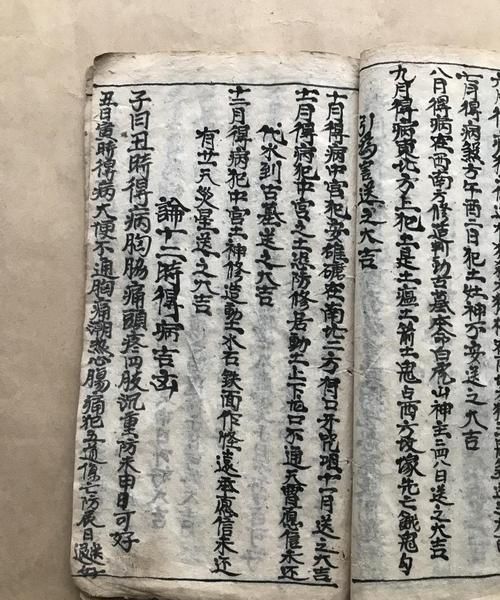 七月得病煞方午酉二日犯土灶神不安送之大吉
八月得病在西南方修造前动古墓本命白虎山神主二四八日送之大吉
九月得病東北方上犯土是土瘟土箭土鬼占西方故塚先亡餓鬼勾
引為害送之大吉
十月得病中宮犯安碓磑在南北二方有口牙咒咀十一月送之大吉
十一月得病犯中宮之土堤防修居動土上下竈口不通天曹愿信未还
代水到古墓送之大吉
十二月得病犯中宮土神修造動土水石鉄面作怪遠年愿信未还
有廿一天災星送之大吉
論十二時得病吉凶
子日丑時得病胸脇痛頭疼四肢沉重防未申日可好
丑日寅時得病大便不通胸痛潮热心腸痛犯五道傷亡防辰日